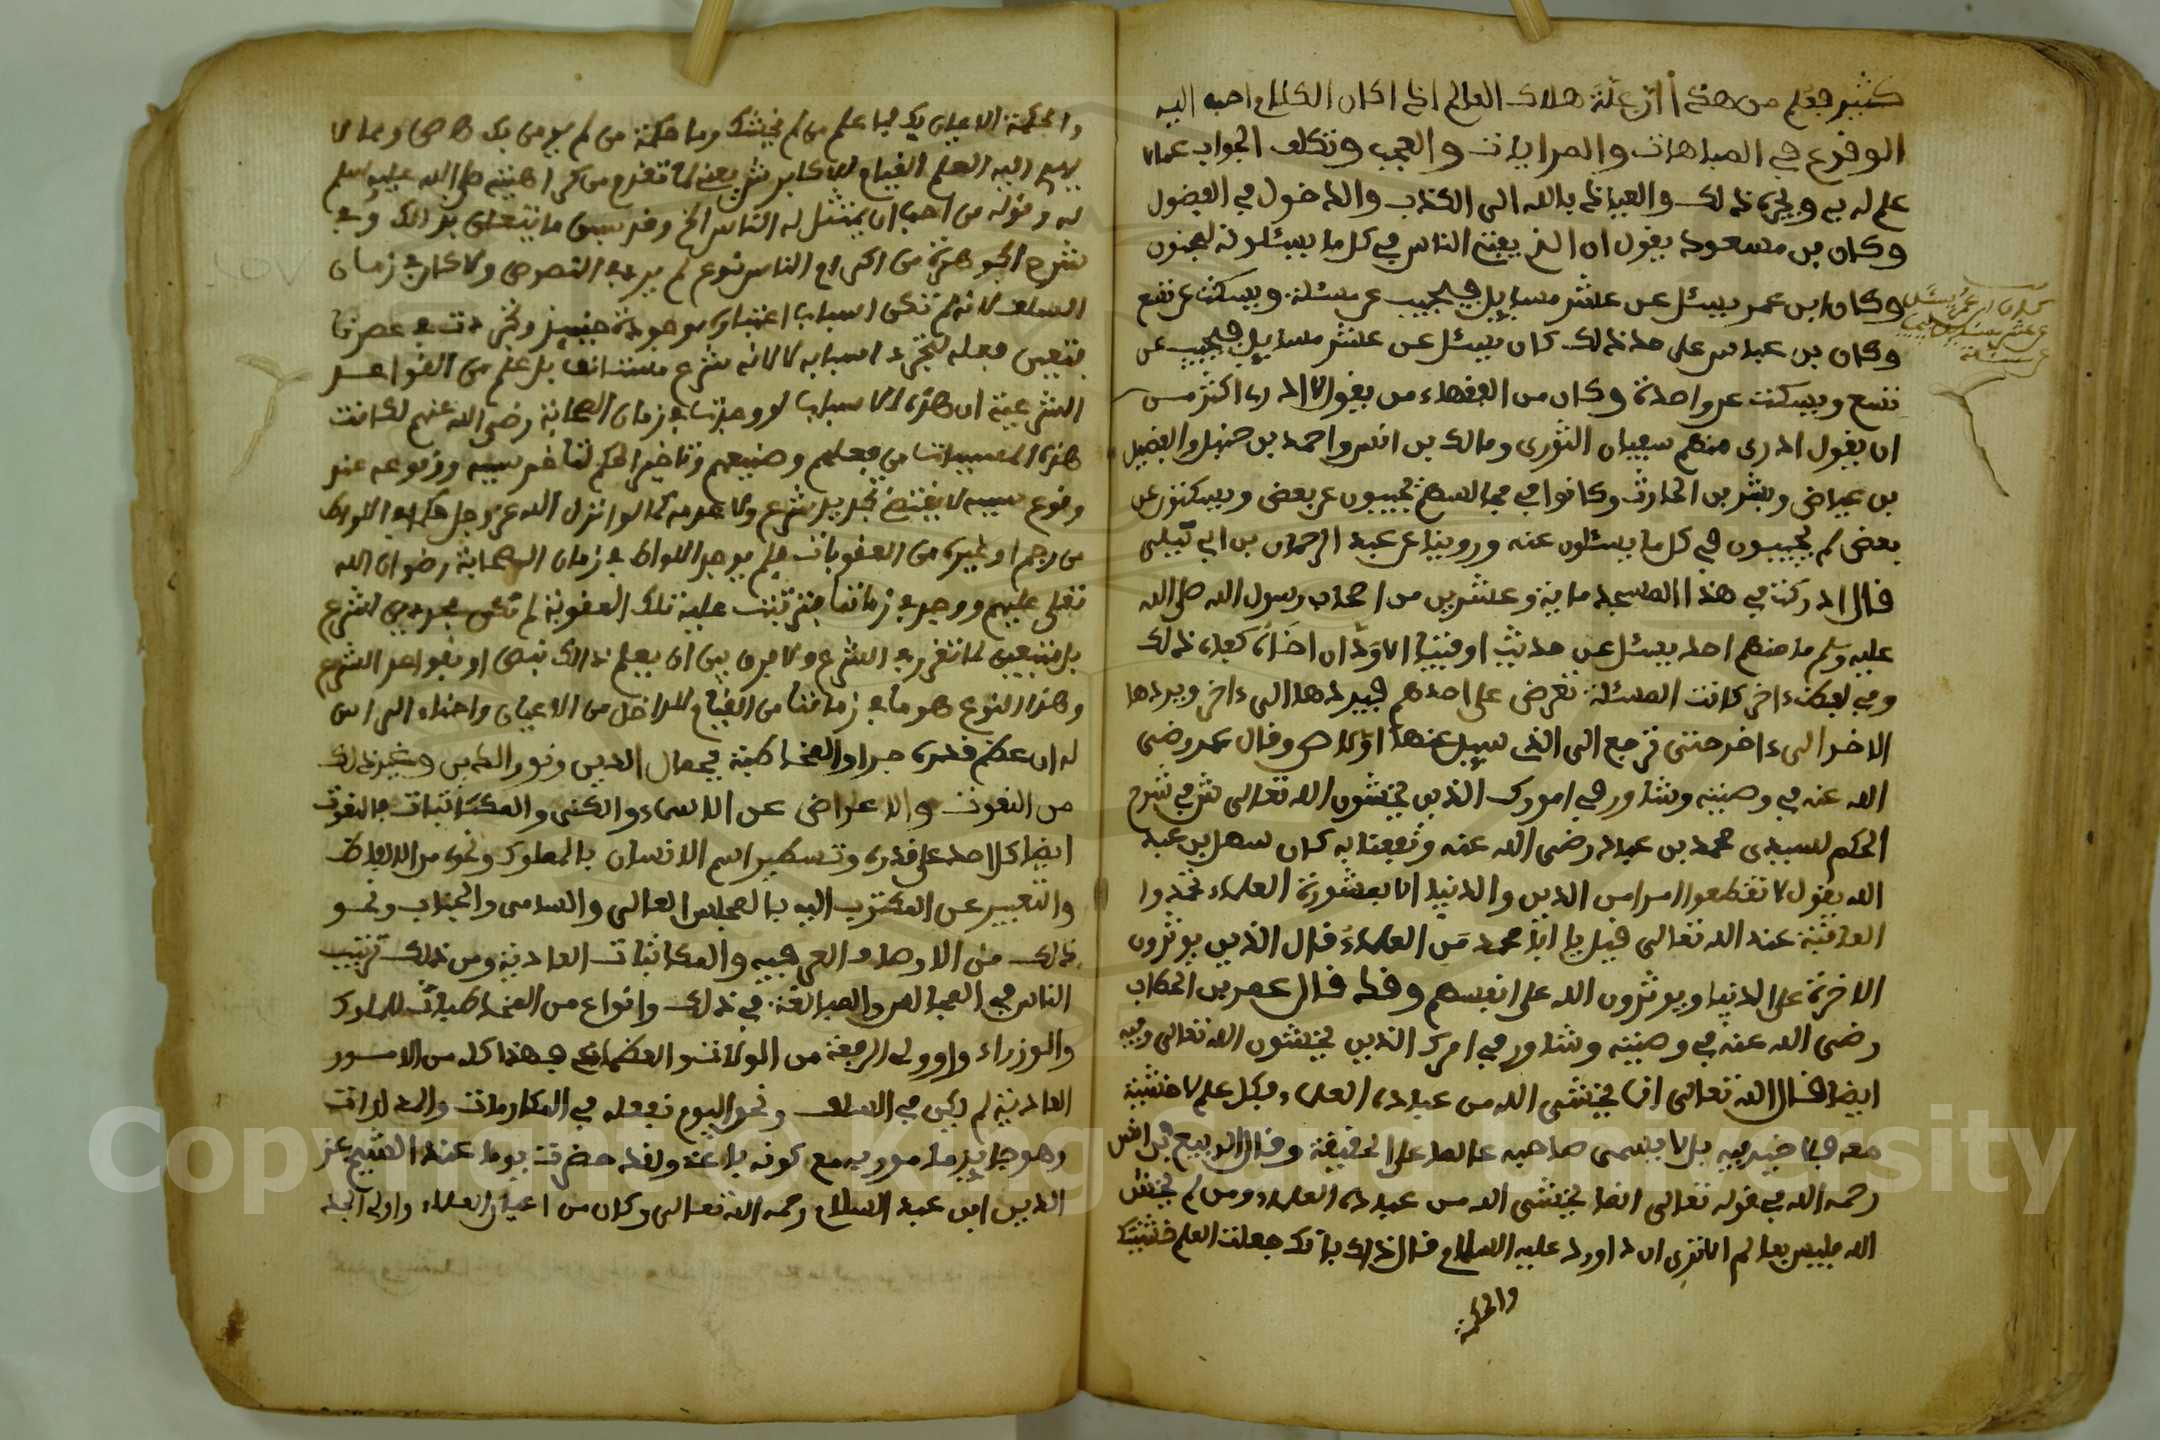 كثير فعلم من هذا أن علة هلاك العالم إذا كان الكلام احب اليه
الوقوع في المباهات والمرايات والعجب وتكلف الجواب عما لا
علم له به ويجره ذلك والعياذ بالله الى الكذب والدخول في الفضول
وكان بن مسعود يقول ان الذي يفتي الناس في كل ما يسئلونه لمجنون
وكان ابن عمر يسئل عن عشر مسايل فيجيب عن مسئلة ويسكت عن تسع
وكان بن عباس على ضد ذلك كان يسئل عن عشر مسايل فيجيب عن
تسع ويسكت عن واحدة وكان من الفقهاء من يقول لا ادري اكثر من
ان يقول ادري منهم سفيان الثوري ومالك بن انس واحمد بن حنبل والفضيل
بن عياض وبشر بن الحارث وكانوا في مجالسهم يجيبون عن بعض ويسكتون عن
بعض لم يجيبون في كل ما يسئلون عنه وروينا عن عبد الرحمان بن ابي ليلى
قال ادركت في هذا المسجد ماية وعشرين من اصحاب رسول الله صلى الله
عليه وسلم ما منهم احد يسئل عن حديث او فتيا الا ود ان اخاه كفاه ذلك
وفي لفظ ءاخر كانت المسئلة تعرض على احدهم فيردها الى ءاخر ويردها
الاخر الى ءاخر حتى ترجع الى الذي سيل عنها اول مرة وقال عمر رضي
الله عنه في وصيته وشاور في امورك الذين يخشون الله تعالى ش في شرح
الحكم لسيدي محمد بن عباد رضي الله عنه ونفعنا به كان سهل بن عبد
الله يقول لا تقطعوا امرا من الدين والدنيا الا بمشورة العلماء تحمدوا
العاقبة عند الله تعالى قيل يا ابا محمد من العلماء قال الذين يوثرون
الاخرة على الدنيا ويوثرون الله على انفسهم وقد قال عمر بن الخطاب
رضي الله عنه في وصيته وشاور في امرك الذين يخشون الله تعالى وفيه
ايضا قال الله تعالى انما يخشى الله من عباده العلماء وكل علم لا خشية
معه فلا خير فيه بل لا يسمى صاحبه عالما على الحقيقة وقال الربيع بن انس
رحمه الله في قوله تعالى انما يخشى الله من عباده العلماء ومن لم يخش
الله فليس بعالم الا ترى ان داوود عليه السلام قال ذلك بانك جعلت العلم خشيتك
والحكمة
كان ابن عمر يسئل
عن عشر مسايل فيجيب
عن مسئلة
والحكمة الايمان بك فما علم من لم يخشك وما حكمة من لم يومن بك
اليه العلم القيام للاكابر ش يعني لما تقدم من كراهيته صلى الله عليه وسلم
له وقوله من احب ان يتمثل له الناس الخ وقد سبق ما يتعلق بذلك وفي
شرح الجوهرة من اكرام الناس نوع لم يرد في النصوص ولا كان في زمان
السلف لانه لم تكن اسباب اعتباره موجودة حينيذ وتجددت في عصرنا
فتعين فعله لتجدد اسبابه لا لانه شرع مستانف بل علم من القواعد
الشرعية ان هذه الاسباب لو وجدت في زمان الصحابة رضي الله عنهم لكانت
هذه المسببات من فعلهم وصنيعهم وتاخير الحكم لتاخر سببه ووقوعه عند
وقوع سببه لا يقتضي تجديد شرع ولا عدمه كما لو انزل الله عز وجل حكما في اللواط
من رجم او غيره من العقوبات فلم يوجد اللواط في زمان الصحابة رضوان الله
تعلى عليهم ووجد في زماننا فترتبت عليه تلك العقوبة لم تكن مجددين لشرع
بل متبعين لما تقرر في الشرع ولا فرق بين ان يعلم ذالك بنص او بقواعد الشرع
وهذا النوع هو ما في زماننا من القيام للداخل من الاعيان واحناء الراس
له ان عظم قدره جدا والمخاطبة بجمال الدين ونور الدين وغير ذلك
من النعوت والاعراض عن الاسماء والكنى والمكاتبات بالنعوت
ايضا كل احد على قدره وتسطير اسم الانسان بالمملوك ونحوه من الالفاظ
والتعبير عن المكتوب اليه بالمجلس العالي والسامي والجناب ونحو
ذلك من الاوصاف العرفيه والمكاتبات العادية ومن ذلك ترتيب
الناس في المجالس والمبالغة في ذلك وانواع من المخاطبات للملوك
والوزراء واولي الرفعة من الولات والعظماء فهذا كله من الامور
العادية لم يكن في السلف ونحن اليوم نفعله في المكارمات والمدارات
وهو جايز مامور به مع كونه بدعة ولقد حضرت يوما عند الشيخ عز
الدين ابن عبد السلام رحمه الله تعالى وكان من اعيان العلماء واولي الجد
Copyright © King Saud University